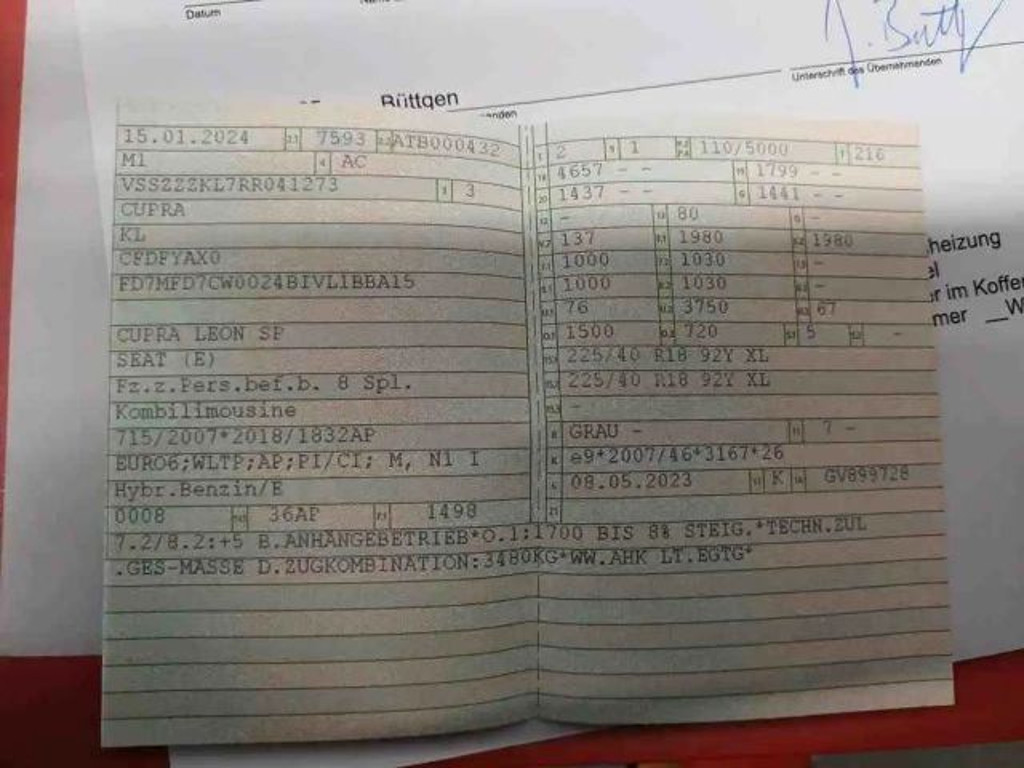 Datum
Unterschrift des Übernehmenden
Büttgen
15.01.2024 7593 ATB000432
M1 AC
VSSZZZKL7RR041273 3
CUPRA
KL
CFDFYAX0
FD7MFD7CW0024BIVL1BBA15
CUPRA LEON SP
SEAT (E)
Fz.z.Pers.bef.b. 8 Spl.
Kombilimousine
715/2007*2018/1832AP
EURO6;WLTP;AP;PI/CI; M, N1 I
Hybr.Benzin/E
0008 36AP 1498
2 1 110/5000 216
4657 - - 1799 - -
1437 - - 1441 - -
- 80 -
137 1980 1980
1000 1030 -
1000 1030 -
76 3750 67
1500 720 5 -
225/40 R18 92Y XL
225/40 R18 92Y XL
-
GRAU - 7 -
e9*2007/46*3167*26
08.05.2023 K GV899728
7.2/8.2:+5 B.ANHÄNGEBETRIEB*O.1:1700 BIS 8% STEIG.*TECHN.ZUL
.GES-MASSE D.ZUGKOMBINATION:3480KG*WW.AHK LT.EGTG*
heizung
el
r im Koffer
mer __W